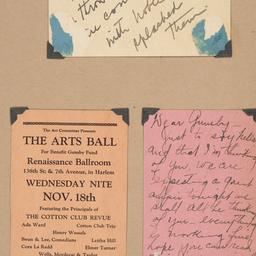 in con
with
reloached
them
The Art Committee Presents
THE ARTS BALL
For Benefit Gumby Fund
Renaissance Ballroom
138th St. & 7th Avenue, in Harlem
WEDNESDAY NITE
NOV. 18th
Featuring the Principals of
THE COTTON CLUB REVUE
Ada Ward Cotton Club Trio
Henry Wessels
Swan & Lee, Comedians Leitha Hill
Cora La Redd Elmer Turner
Wells, Mordecai & Taylor
Dear Gumby—
Just to say hello
and that I'm thinking
of you. We are
expecting a grand
affair tonight we
shall all be think
of you. Everything
is working just
hope you can read